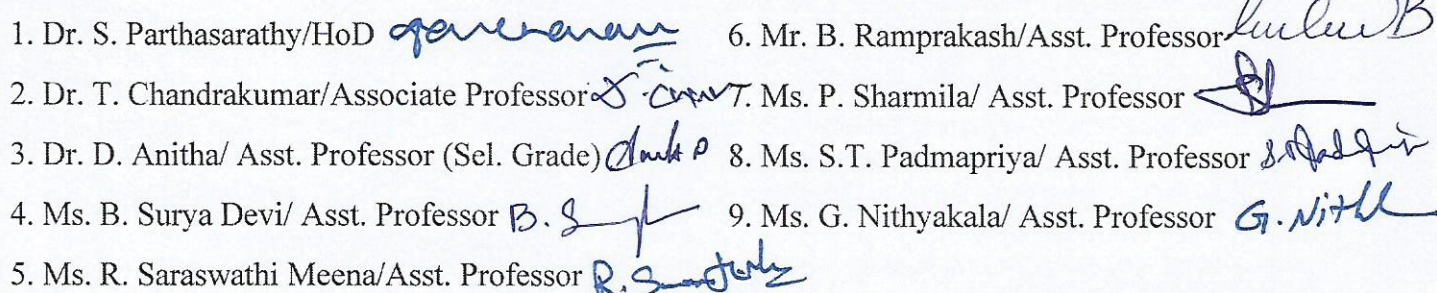 1. Dr. S. Parthasarathy/HoD
2. Dr. T. Chandrakumar/Associate Professor
3. Dr. D. Anitha/ Asst. Professor (Sel. Grade)
4. Ms. B. Surya Devi/ Asst. Professor B. S
5. Ms. R. Saraswathi Meena/Asst. Professor R.
6. Mr. B. Ramprakash/Asst. Professor B
7. Ms. P. Sharmila/ Asst. Professor
8. Ms. S.T. Padmapriya/ Asst. Professor
9. Ms. G. Nithyakala/ Asst. Professor G. Nith